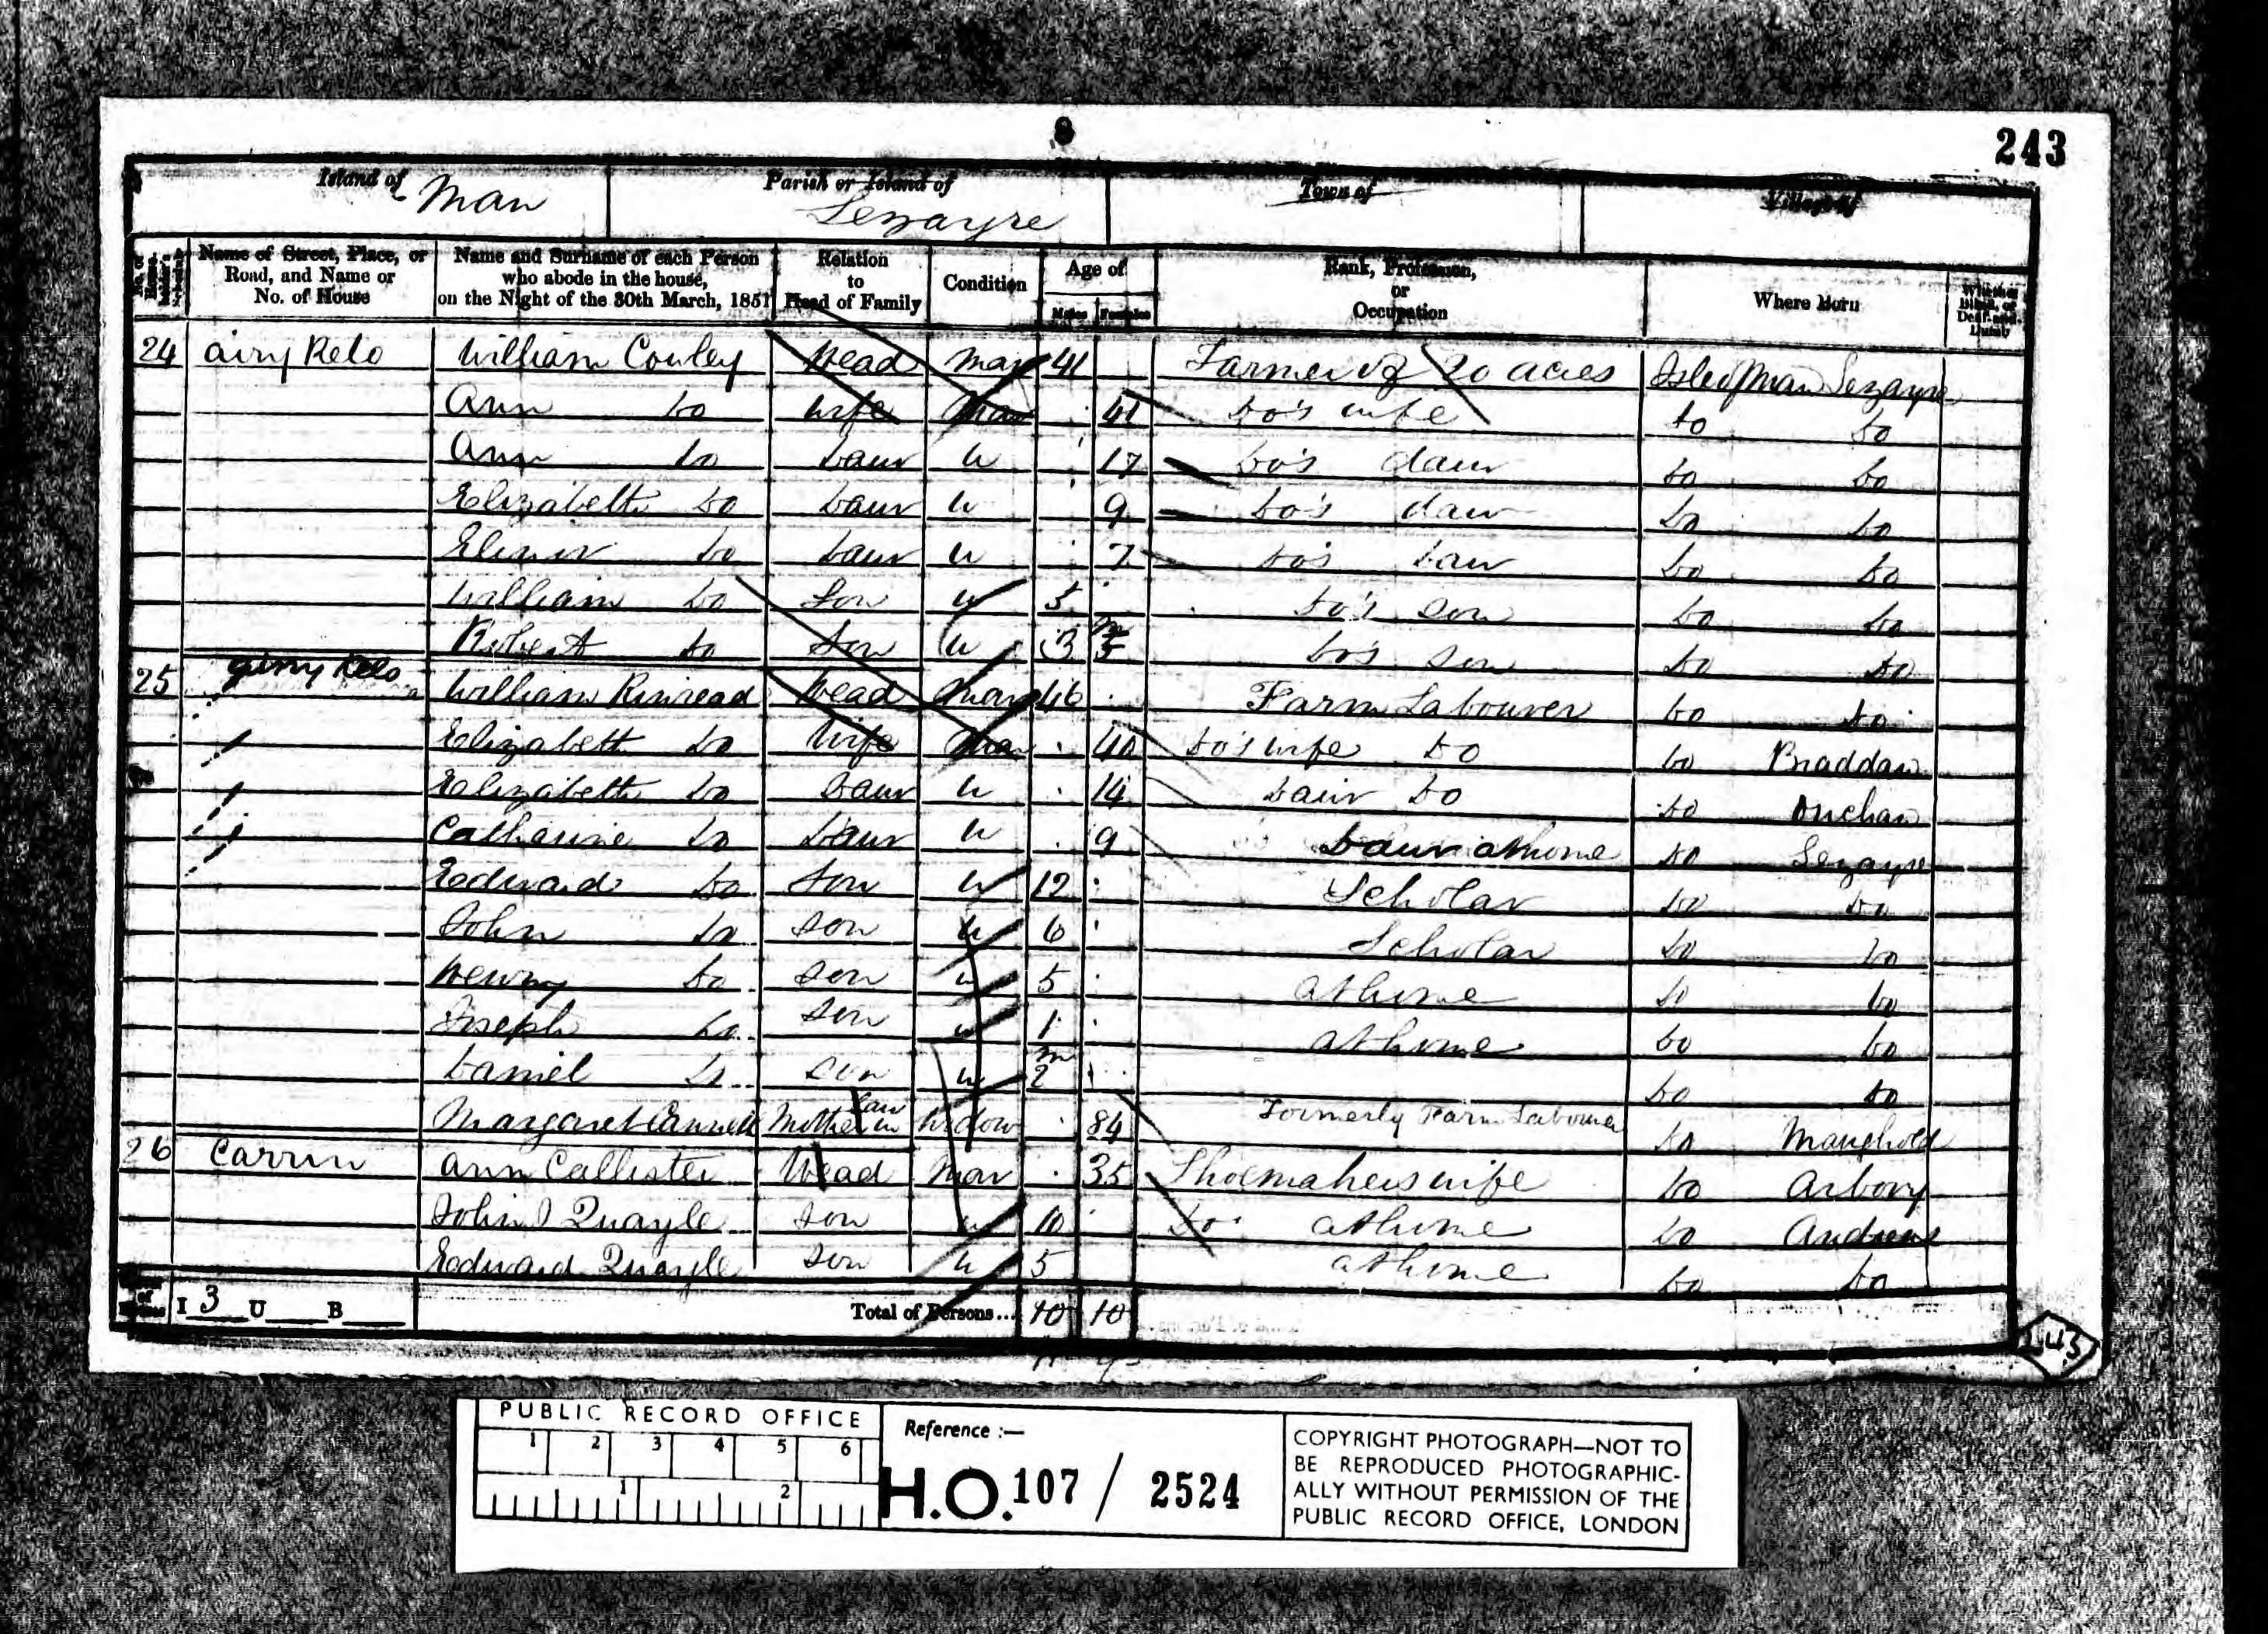 8
243
Island of Man Parish or Island of Lezayre Town of Village of
No. of House-holder's Schedule Name of Street, Place, or Road, and Name or No. of House Name and Surname of each Person who abode in the house, on the Night of the 30th March, 1851 Relation to Head of Family Condition Age of Males Females Rank, Profession, or Occupation Where Born Whether Blind, or Deaf-and-Dumb
24 airy Kelo William Couley Head Mar 41 Farmer of 20 acres Isle of Man Lezayre
Ann Do Wife Mar 41 Do's wife Do Do
Ann Do Daur U 17 Do's daur Do Do
Elizabeth Do Daur U 9 Do's daur Do Do
Elinor Do Daur U 7 Do's Daur Do Do
William Do Son U 5 Do's son Do Do
Robert Do Son U 3 m Do's son Do Do
25 airy Kelo William Kinread Head Mar 46 Farm Labourer Do Do
Elizabeth Do Wife Mar 40 Do's wife Do Do Braddan
Elizabeth Do Daur U 14 Daur Do Do Onchan
Catharine Do Daur U 9 Daur at home Do Lezayre
Edward Do Son U 12 Scholar Do Do
John Do Son U 6 Scholar Do Do
Henry Do Son U 5 at home Do Do
Joseph Do Son U 1 at home Do Do
Daniel Do Son U 2 m Do Do
Margaret Cannell Mother in Law Widow 84 Formerly Farm Labourer Do Maughold
26 Carrin Ann Callister Head Mar 35 Shoemakers wife Do Arbory
John Quayle Son U 10 Do at home Do Andreas
Edward Quayle Son U 5 at home Do Do
I 3 U B Total of Persons... 10 10
11 9
243
PUBLIC RECORD OFFICE
1 2 3 4 5 6
1 2
Reference :—
H.O. 107 / 2524
COPYRIGHT PHOTOGRAPH—NOT TO
BE REPRODUCED PHOTOGRAPHIC-
ALLY WITHOUT PERMISSION OF THE
PUBLIC RECORD OFFICE, LONDON